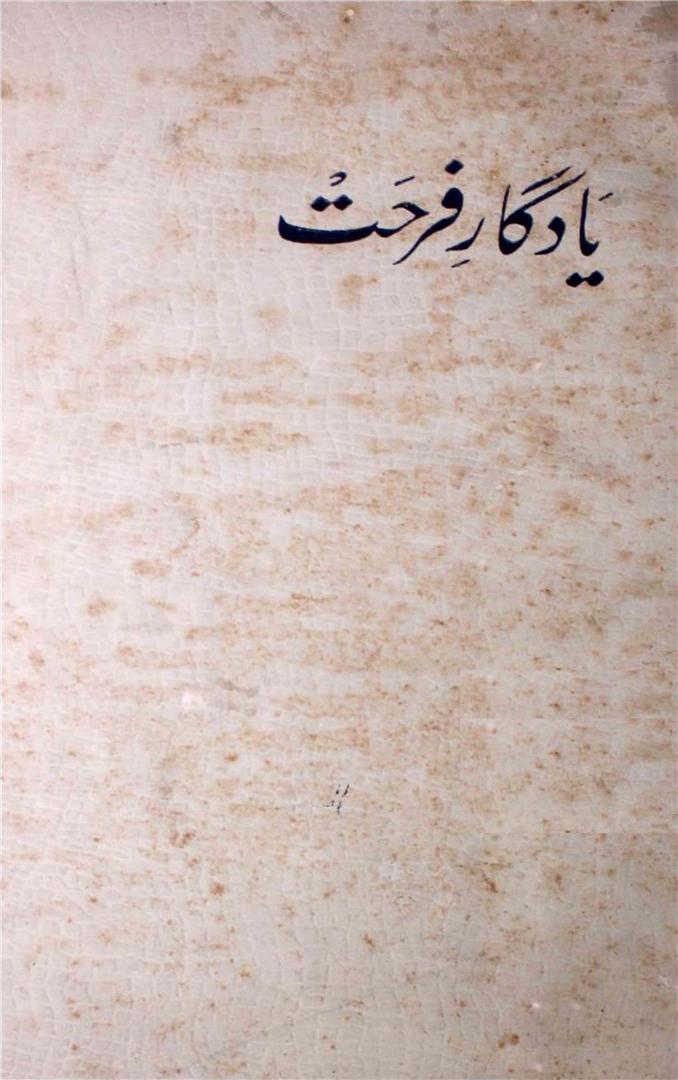 یَادگارِ فرحَتْ